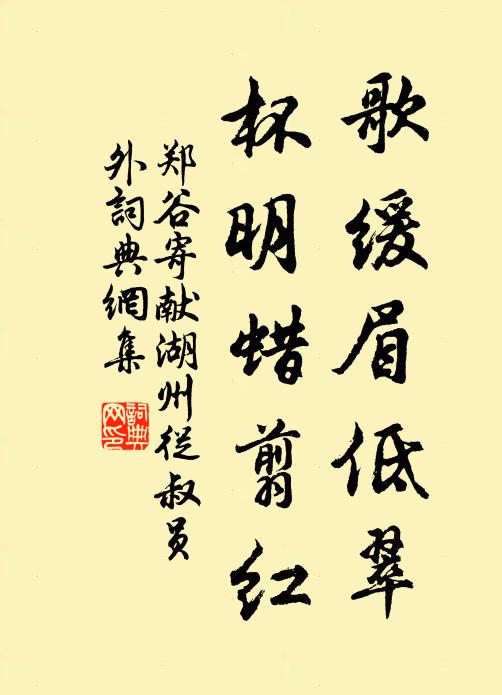 歌缓眉低翠
杯明蜡剪红
郑谷寄献湖州从叔员
外詞典網集
詞典
网印